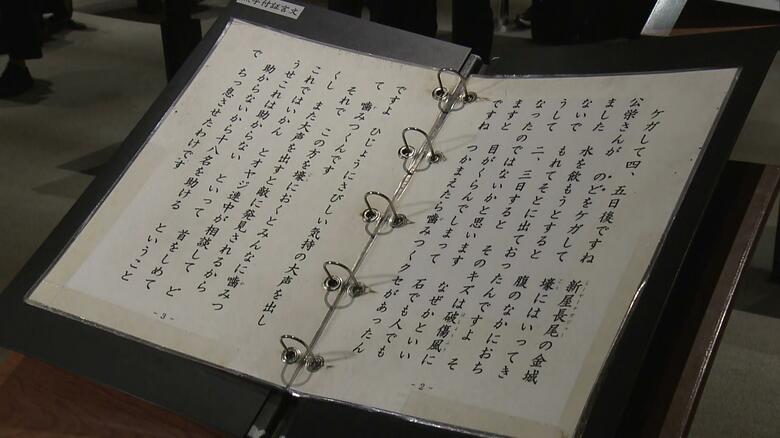 字付証言文
ケガして四、五日後ですね　新屋長尾の金城
公栄さんが　のどをケガして　壕にはいってき
ました　水を飲もうとすると　腹のなかにおち
ないで　もれてそとに出ておったんですよ　そ
うして　二、三日すると　そのキズは破傷風に
なったのではないかと思います　なぜかといい
ますと　目がくらんでしまって　石でも人でも
ですね　つかまえたら噛みつくクセがあったん
-2-
ですよ　ひじょうにさびしい気持の大声を出し
て　噛みつくんです
それで　この方を壕におくとみんなに噛みつ
くし　また大声を出すと敵に発見されるから
これではいかん　とオヤジ連中が相談して　ど
うせこれは助からない　といって　首をしめて
助からないから十八名を助ける　ということ
で　ちっ息させたわけです
-3-